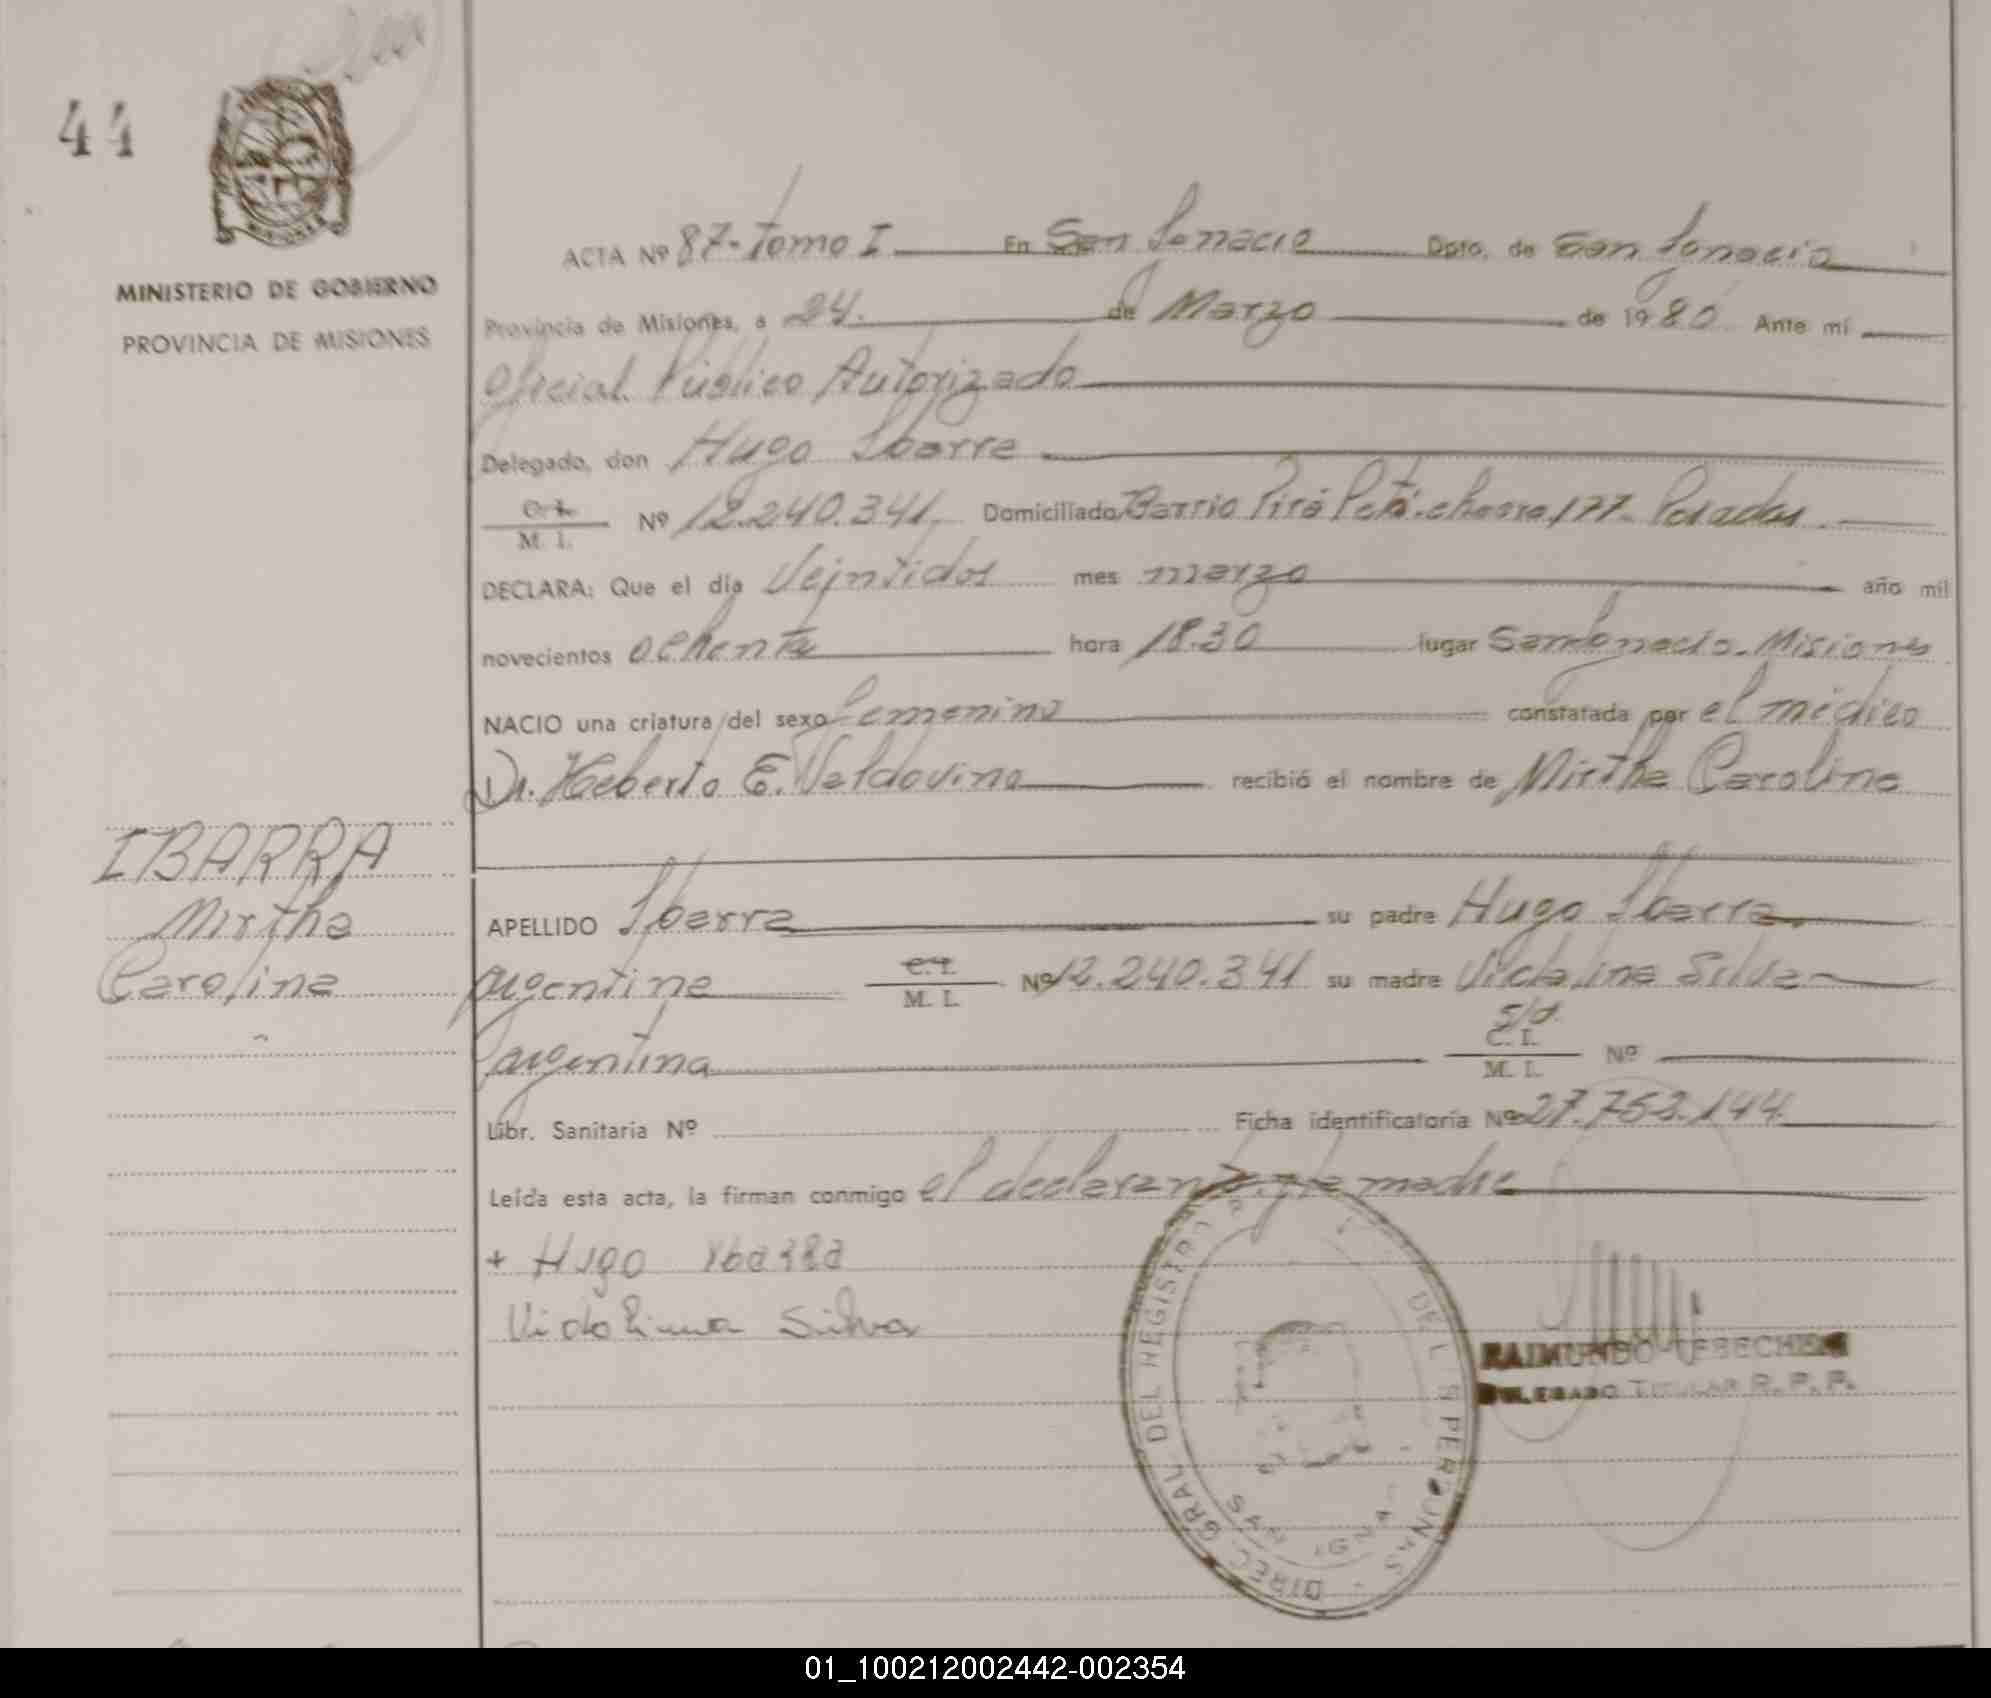 44
MINISTERIO DE GOBIERNO
PROVINCIA DE MISIONES
ACTA Nº 87- Tomo I En San Ignacio Dpto. de San Ignacio
Provincia de Misiones, a 24. de Marzo de 1980. Ante mí
Oficial Público Autorizado
Delegado, don Hugo Ibarra
M. I. Nº 12.240.341, Domiciliado Barrio Pirá Pytá. chacra 177- Posadas
DECLARA: Que el día Veintidos mes marzo año mil
novecientos ochenta hora 18.30 lugar San Ignacio. Misiones
NACIO una criatura del sexo femenino constatada por el médico
Dr. Heberto E. Valdovino recibió el nombre de Mirtha Carolina
IBARRA
Mirtha
Carolina
APELLIDO Ibarra su padre Hugo Ibarra.
argentino C.I. M. I. Nº 12.240.341 su madre Vidalina Silva
argentina s/d. C. I. M. I. Nº
Libr. Sanitaria Nº Ficha identificatoria Nº 27.753.144
Leída esta acta, la firman conmigo el declarante y la madre
+ Hugo Ibarra
Vidolina Silva
RAIMUNDO
DELEGADO TITULAR R. P. P.
DIREC. GRAL. DEL REGISTRO DE L S PERSONAS
SAN IGNA
01_100212002442-002354